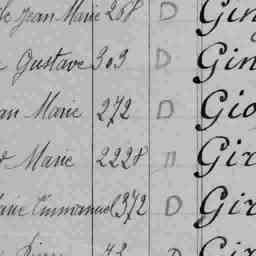 Jean Marie 268 D Gin
Gustave 303 D Gin
Marie 272 D Gio
Marie 2228 n Gir
Emmanuel 1372 D Gir